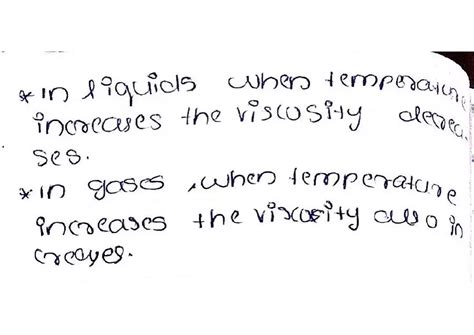 * in liquids when temperature
increases the viscosity decrea
ses.
* in gases , when temperature
increases the viscosity also in
creases.